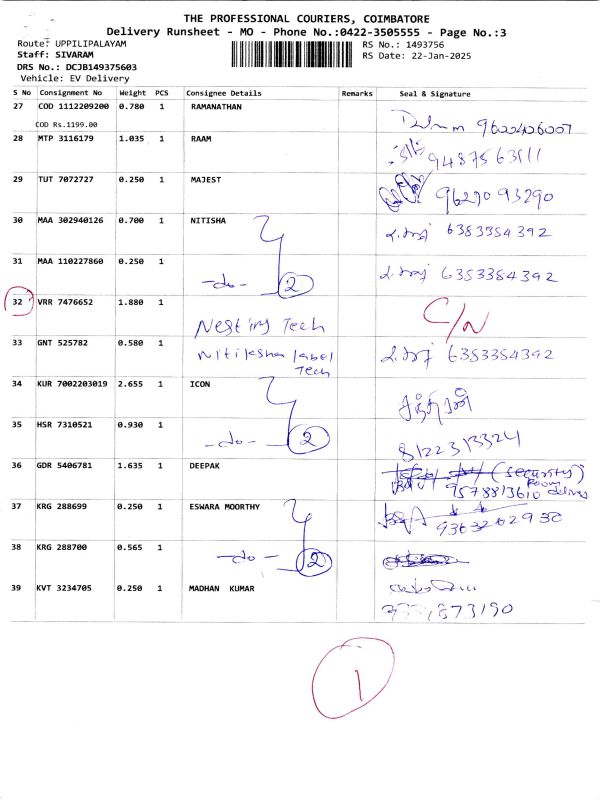 THE PROFESSIONAL COURIERS, COIMBATORE
Delivery Runsheet - MO - Phone No.:0422-3505555 - Page No.:3
Route: UPPILIPALAYAM RS No.: 1493756
Staff: SIVARAM RS Date: 22-Jan-2025
DRS No.: DCJB149375603
Vehicle: EV Delivery
S No Consignment No Weight PCS Consignee Details Remarks Seal & Signature
27 COD 1112209200 0.780 1 RAMANATHAN
COD Rs.1199.00 9600406007
28 MTP 3116179 1.035 1 RAAM
29 TUT 7072727 0.250 1 MAJEST 9629093290
30 MAA 302940126 0.700 1 NITISHA 6383354392
31 MAA 110227860 0.250 1 -do- 2 6383354392
32 VRR 7476652 1.880 1 Nesting Tech C/N
33 GNT 525782 0.580 1 Nitiksha label Tech 6383354392
34 KUR 7002203019 2.655 1 ICON
35 HSR 7310521 0.930 1 -do- 2 8122313324
36 GDR 5406781 1.635 1 DEEPAK (security)
Room 9578813610
37 KRG 288699 0.250 1 ESWARA MOORTHY 9363262930
38 KRG 288700 0.565 1 -do- 2
39 KVT 3234705 0.250 1 MADHAN KUMAR
1